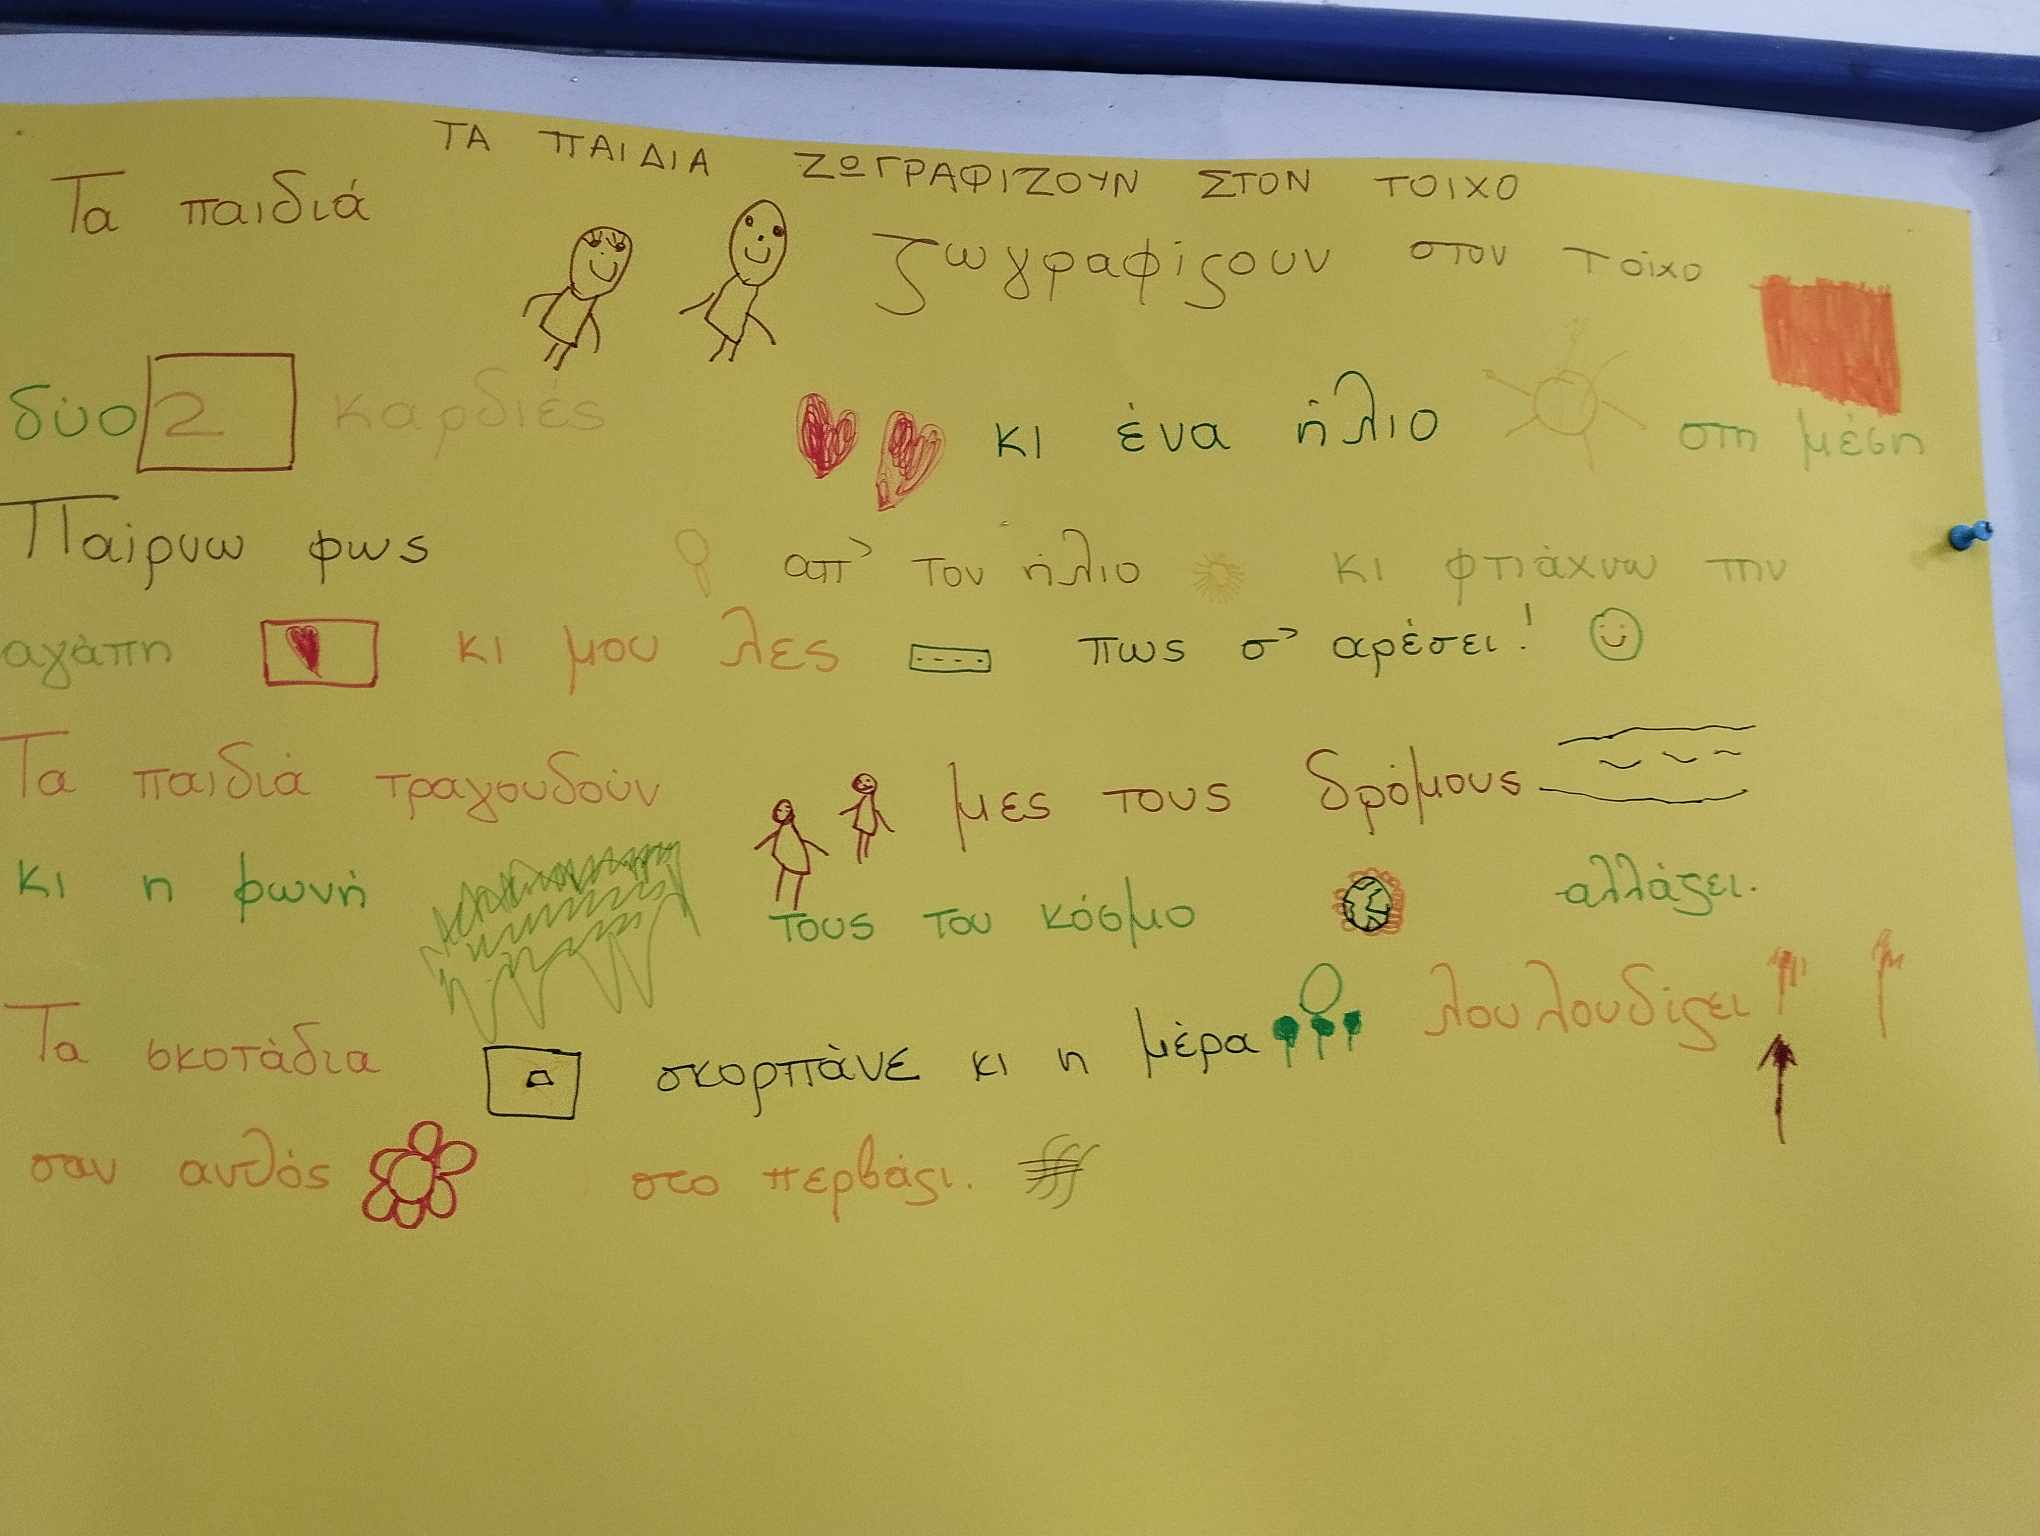 ΤΑ ΠΑΙΔΙΑ ΖΩΓΡΑΦΙΖΟΥΝ ΣΤΟΝ ΤΟΙΧΟ
Τα παιδιά ζωγραφίζουν στον τοίχο
δύο 2 καρδιές κι ένα ήλιο στη μέση
Παίρνω φως απ' τον ήλιο κι φτιάχνω την
αγάπη κι μου λες πως σ' αρέσει!
Τα παιδιά τραγουδούν μες τους δρόμους
κι η φωνή τους τον κόσμο αλλάζει.
Τα σκοτάδια σκορπάνε κι η μέρα λουλουδίζει
σαν ανθός στο περβάζι.